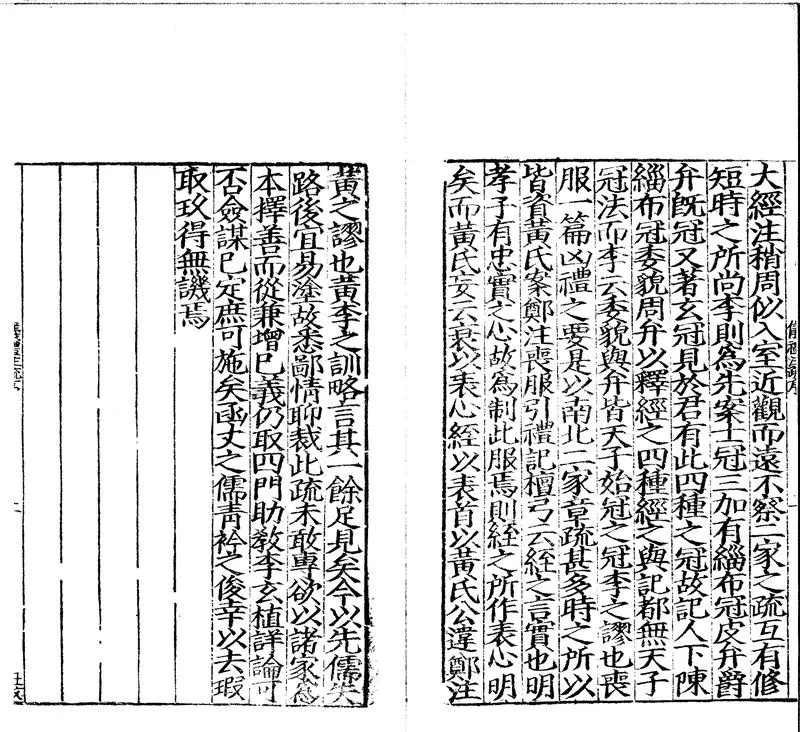 大經注稍周似入室近觀而遠不察二家之疏互有修
短時之所尚李則爲先案士冠三加有緇布冠皮弁爵
弁旣冠又著玄冠見於君有此四種之冠故記人下陳
緇布冠委貌周弁以釋經之四種經之與記都無天子
冠法而李云委貌與弁皆天子始冠之冠李之謬也喪
服一篇凶禮之要是以南北二家章疏甚多時之所以
皆資黃氏案鄭注喪服引禮記檀弓云絰之言實也明
孝子有忠實之心故爲制此服焉則絰之所作表心明
矣而黃氏妄云衰以表心絰以表首以黃氏公違鄭注
黃之謬也黃李之訓略言其一餘足見矣今以先儒失
路後宜易塗故悉鄙情聊裁此疏未敢專欲以諸家爲
本擇善而從兼增已義仍取四門助敎李玄植詳論可
否僉謀已定庶可施矣函丈之儒靑衿之俊幸以去瑕
取玖得無譏焉